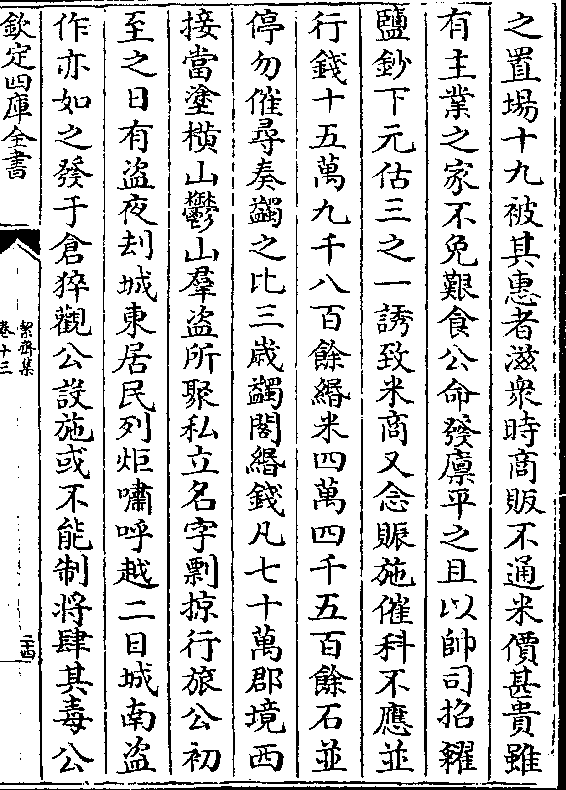 之置場十九被其惠者滋衆時商販不通米價甚貴雖
有主業之家不免艱食公命發廪平之且以帥司招糴
鹽鈔下元估三之一誘致米商又念賑施催科不應並
行錢十五萬九千八百餘緡米四萬四千五百餘石並
停勿催尋奏蠲之比三歲蠲閣緡錢凡七十萬郡境西
接當塗横山鬱山羣盗所聚私立名字剽掠行旅公初
至之日有盗夜刦城東居民列炬嘯呼越二日城南盗
作亦如之發于倉猝觀公設施或不能制將肆其毒公
欽定四庫全書
絜齋集
卷十三
二十四